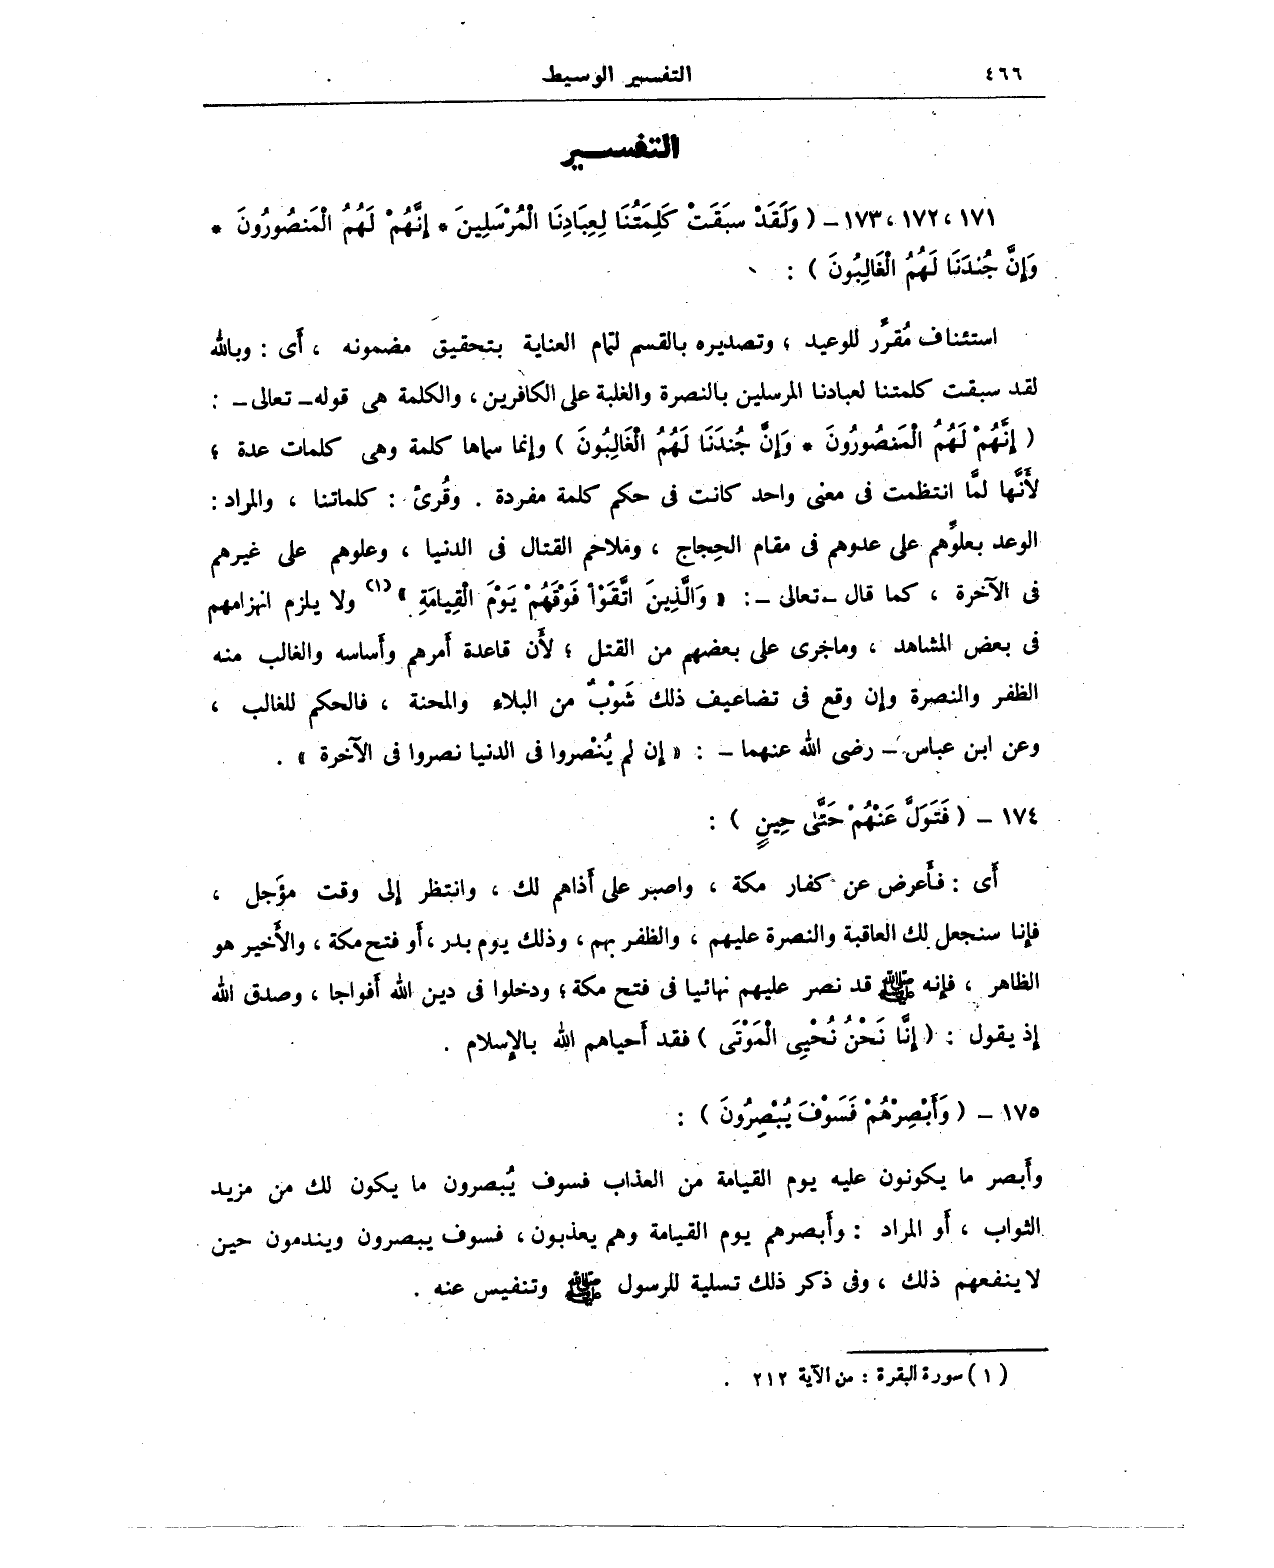 ٤٦٦ التفسير الوسيط
التفسير
١٧١ ، ١٧٢ ، ١٧٣ - ( وَلَقَدْ سَبَقَتْ كَلِمَتُنَا لِعِبَادِنَا الْمُرْسَلِينَ * إِنَّهُمْ لَهُمُ الْمَنصُورُونَ *
وَإِنَّ جُندَنَا لَهُمُ الْغَالِبُونَ ) :
استئناف مُقرِّر للوعيد ، وتصديره بالقسم لتمام العناية بتحقيق مضمونه ، أَى : وبالله
لقد سبقت كلمتنا لعبادنا المرسلين بالنصرة والغلبة على الكافرين ، والكلمة هى قوله - تعالى - :
( إِنَّهُمْ لَهُمُ الْمَنصُورُونَ * وَإِنَّ جُندَنَا لَهُمُ الْغَالِبُونَ ) وإنما سماها كلمة وهى كلمات عدة ؛
لأَنَّها لمَّا انتظمت فى معنى واحد كانت فى حكم كلمة مفردة . وقُرئَ : كلماتنا ، والمراد :
الوعد بعلوِّهم على عدوهم فى مقام الحِجاج ، وملاحم القتال فى الدنيا ، وعلوهم على غيرهم
فى الآخرة ، كما قال - تعالى - : « وَالَّذِينَ اتَّقَوْا فَوْقَهُمْ يَوْمَ الْقِيَامَةِ » (١) ولا يلزم انهزامهم
فى بعض المشاهد ، وماجرى على بعضهم من القتل ؛ لأَن قاعدة أَمرهم وأَساسه والغالب منه
الظفر والنصرة وإن وقع فى تضاعيف ذلك شَوْبٌ من البلاء والمحنة ، فالحكم للغالب ،
وعن ابن عباس - رضى الله عنهما - : « إن لم يُنْصروا فى الدنيا نصروا فى الآخرة » .
١٧٤ - ( فَتَوَلَّ عَنْهُمْ حَتَّىٰ حِينٍ ) :
أَى : فأَعرض عن كفار مكة ، واصبر على أَذاهم لك ، وانتظر إلى وقت مؤَجل ،
فإنا سنجعل لك العاقبة والنصرة عليهم ، والظفر بهم ، وذلك يوم بدر ، أَو فتح مكة ، والأَخير هو
الظاهر ، فإنه ﷺ قد نصر عليهم نهائيا فى فتح مكة ؛ ودخلوا فى دين الله أَفواجا ، وصدق الله
إذ يقول : ( إِنَّا نَحْنُ نُحْيِى الْمَوْتَى ) فقد أَحياهم الله بالإِسلام .
١٧٥ - ( وَأَبْصِرْهُمْ فَسَوْفَ يُبْصِرُونَ ) :
وأَبصر ما يكونون عليه يوم القيامة من العذاب فسوف يُبصرون ما يكون لك من مزيد
الثواب ، أَو المراد : وأَبصرهم يوم القيامة وهم يعذبون ، فسوف يبصرون ويندمون حين
لا ينفعهم ذلك ، وفى ذكر ذلك تسلية للرسول ﷺ وتنفيس عنه .
( ١ ) سورة البقرة : من الآية ٢١٢ .